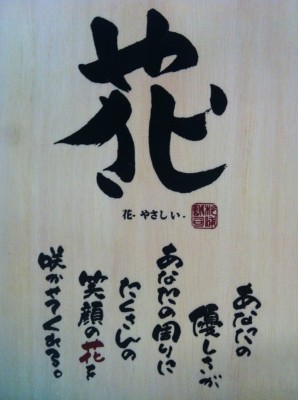 花
花- やさしい -
あなたの
優しさが
あなたの周りに
たくさんの
笑顔の花を
咲かせてくれる。